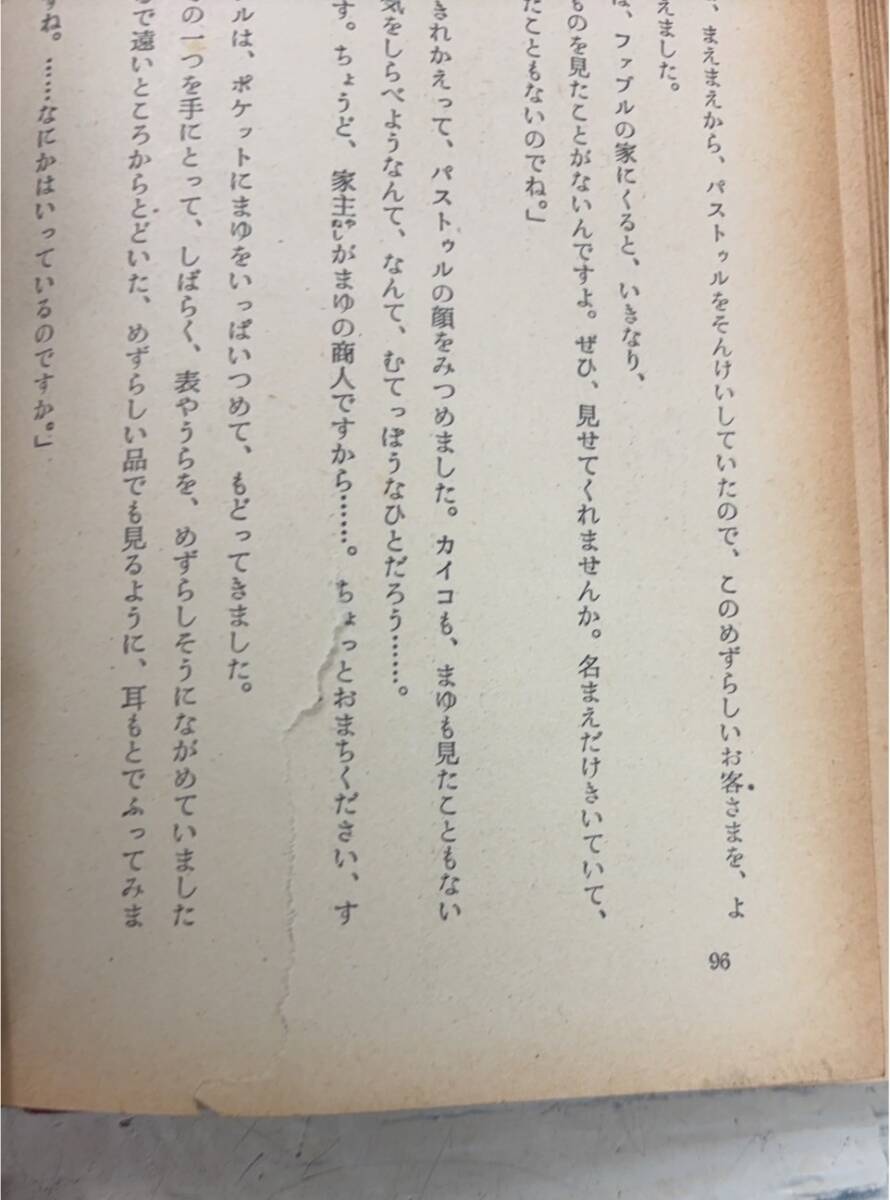 、まえまえから、パストゥルをそんけいしていたので、このめずらしいお客さまを、よ
えました。
、ファブルの家にくると、いきなり、
ものを見たことがないんですよ。ぜひ、見せてくれませんか。名まえだけきいていて、
たこともないのでね。」
きれかえって、パストゥルの顔をみつめました。カイコも、まゆも見たこともない
気をしらべようなんて、なんて、むてっぽうなひとだろう……。
す。ちょうど、家主がまゆの商人ですから……。ちょっとおまちください、す
ルは、ポケットにまゆをいっぱいつめて、もどってきました。
の一つを手にとって、しばらく、表やうらを、めずらしそうにながめていました
で遠いところからとどいた、めずらしい品でも見るように、耳もとでふってみま
すね。……なにかはいっているのですか。」
96